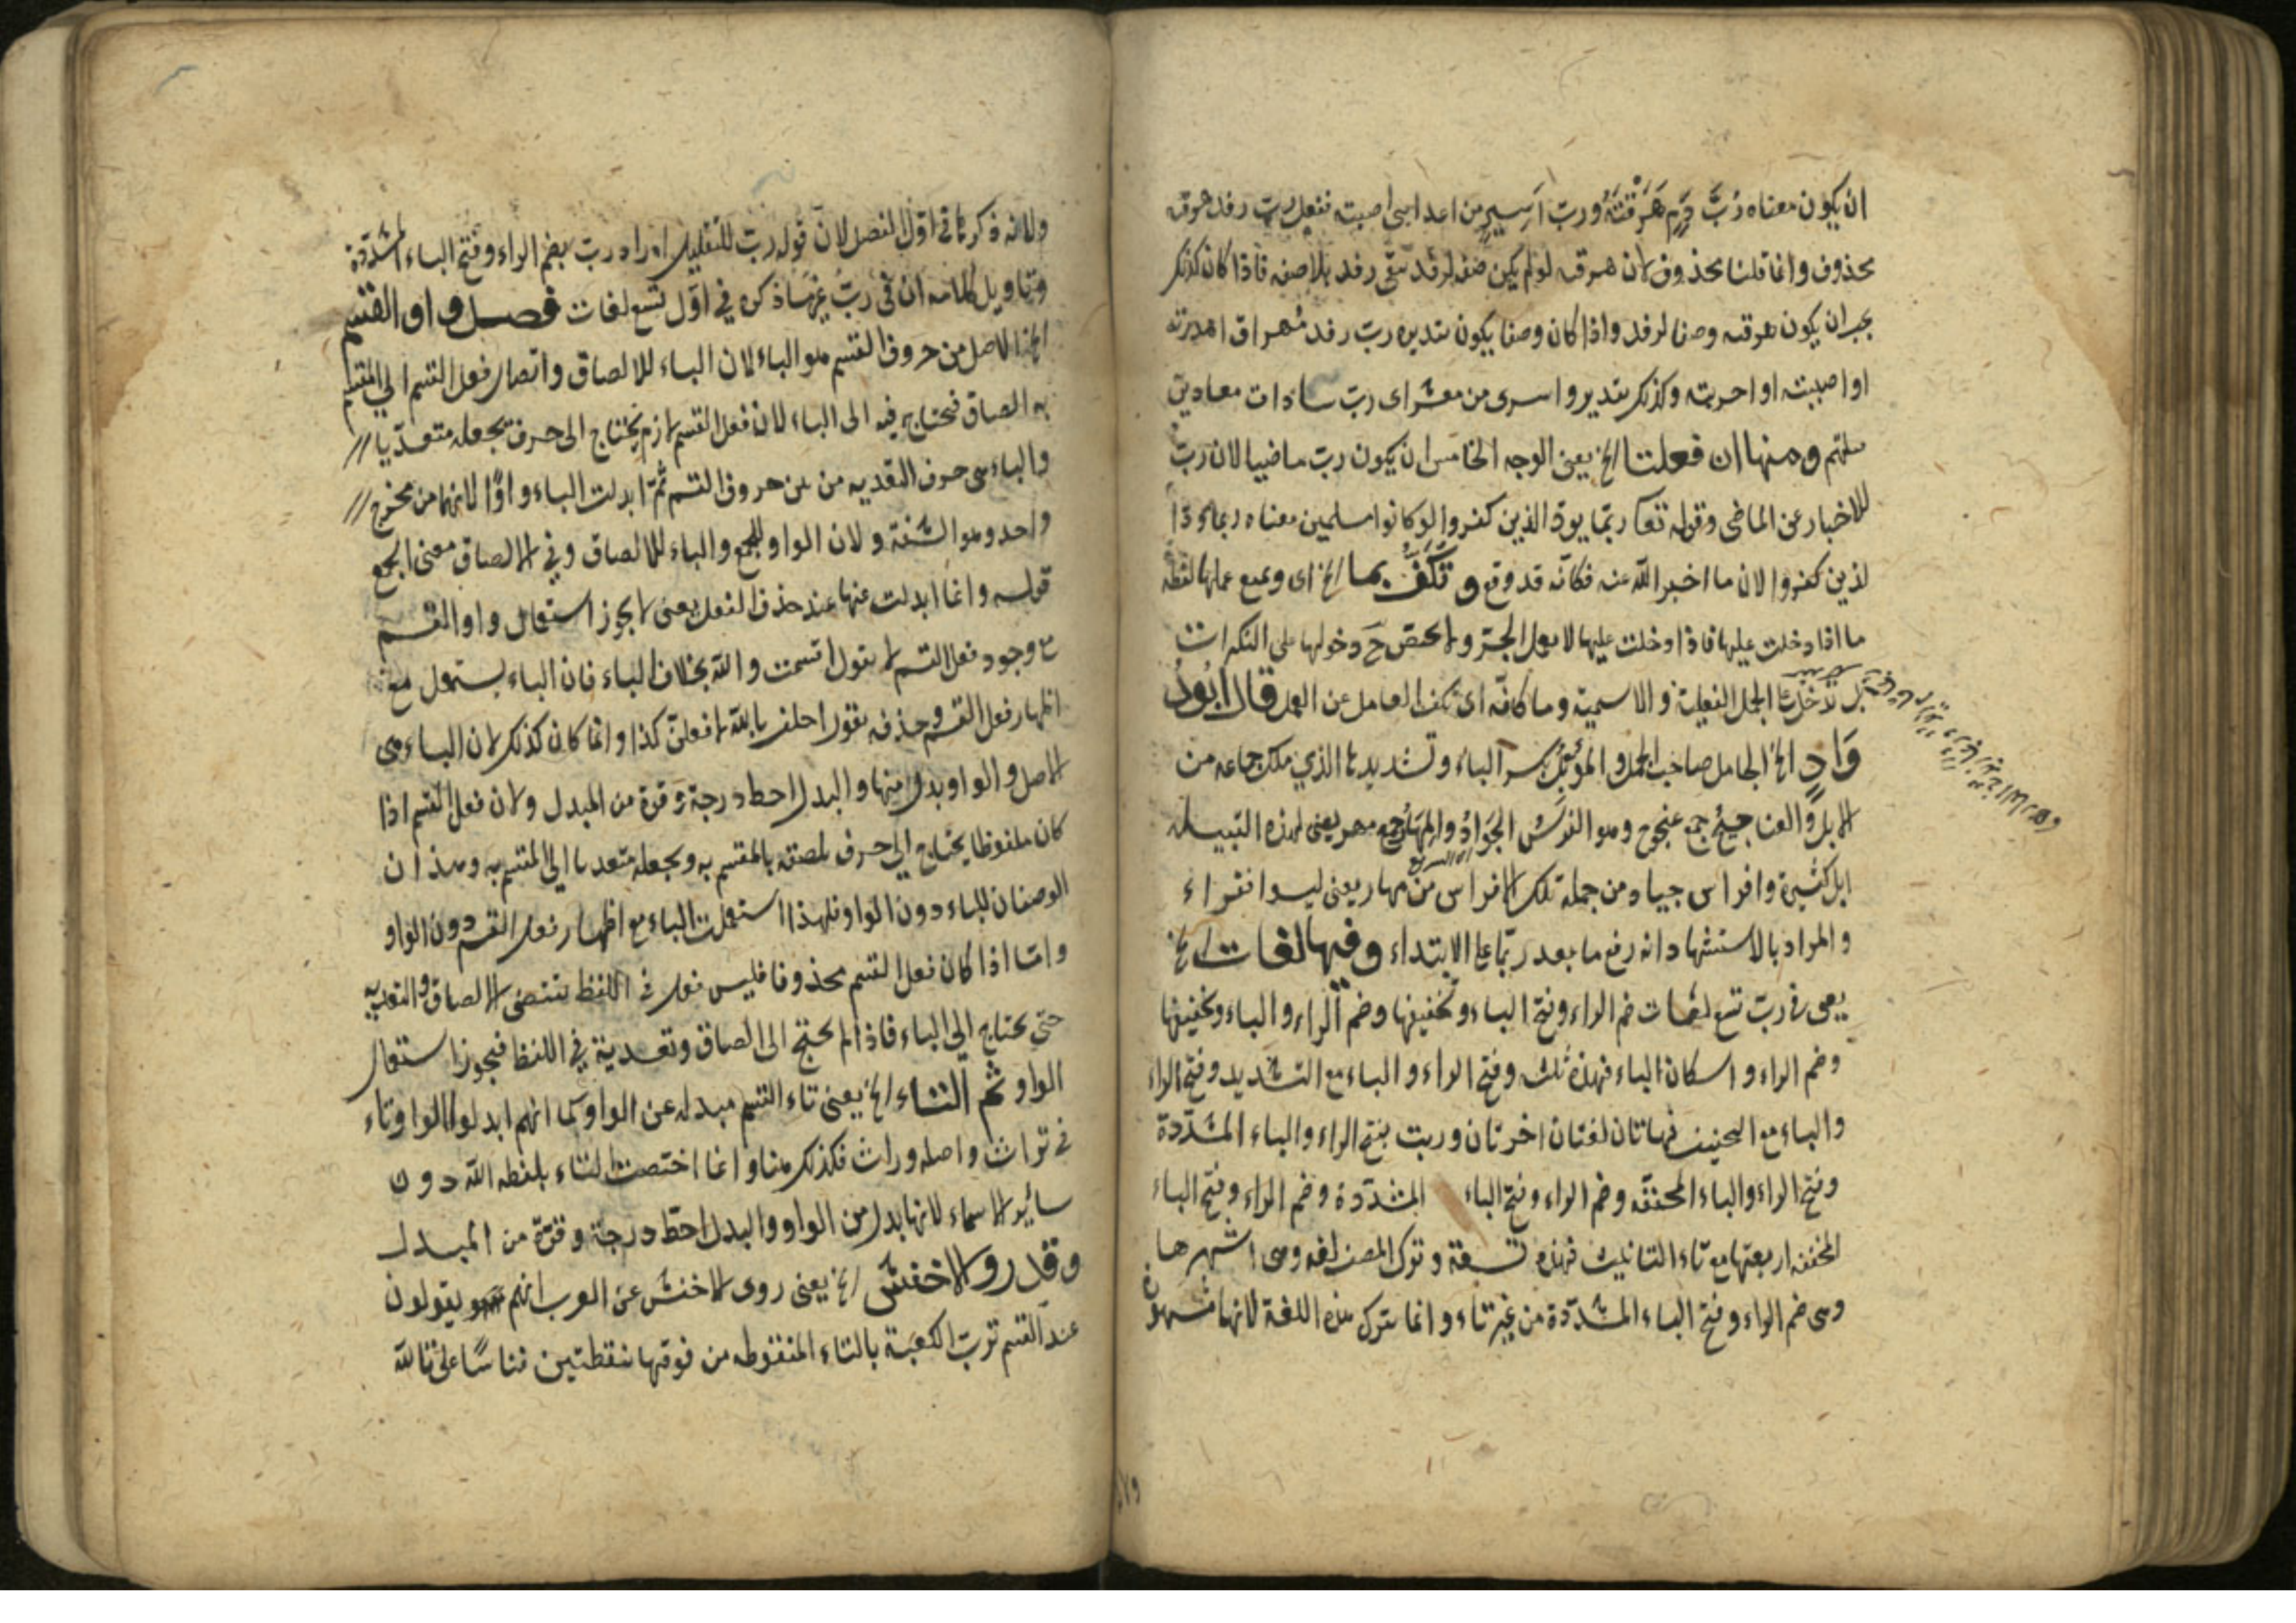 ان يكون معناه رُبَّ دَمٍ هَرَقْتَهُ وربّ اَسِيرٍ من اعدائى اصبته ففعل رب رفد هرقته
محذوف وانما قلنا محذوف لان هرقته لو لم يكن صفة لرفد بقى رفد بلا صفة فاذا كان كذلك
يجب ان يكون هرقته وصفا لرفد واذا كان وصفا يكون تقديره ربّ رفد مُهراق اهدرته
او اصبته او احرزته وكذلك تقدير واسرى من معشر اى ربّ سادات معادين
ومنها ان فعلها الخ يعنى الوجه الخامس ان يكون ربّ ماضيا لان ربّ
للاخبار عن الماضى وقوله تعا ربّما يودّ الذين كفروا لو كانوا مسلمين معناه ربما ودّ ا
لذين كفروا لان ما اخبر اللّه عنه فكانّه قد وقع وتُكَفُّ بما الخ اى ويمنع عملها لفظة
ما اذا دخلت عليها فاذا دخلت عليها لا يعمل الجرّ ولا يختصّ ح دخولها على النكرات
بل تدخل على الجمل الفعلية والاسمية وما كافّه اى تكف العامل عن العمل قال ابُودُ
وَادٍ الخ الجامل صاحب الجمل والمؤبَّل بكسر الباء وتشديدها الذي ملك جماعه من
الابل والعناجيج جمع عنجوج وهو الفَرَسُ الجَوَادُ والمِهَار جمع مهر يعنى لهذه القبيلة
ابل كثيرة وافراس جياد ومن جملة تلك الافراس من مهار يعنى ليسوا فقراء
والمراد بالاستشهاد انه رفع ما بعد ربّما على الابتداء وفيها لغات الخ
يعنى فى ربّ تسع لغات ضم الراء وفتح الباء وتخفيفها وضم الراء والباء وتخفيفها
وضم الراء واسكان الباء فهذه ثلث وفتح الراء والباء مع التشديد وفتح الراء
والباء مع التخفيف فهاتان لغتان اخرتان وربت بفتح الراء والباء المشدّدة
وفتح الراء والباء المخففه وضم الراء وفتح الباء المشدّدة وضم الراء وفتح الباء
المخففه اربعتها مع تاء التانيث فهذه تسعة وترك المصنف لغه وهى اشهرها
وهى ضم الراء وفتح الباء المشدّدة من غير تاء وانما يترك هذه اللغة لانها مشهورة
ولانه ذكرها فى اوّل الفصل لان قوله ربّ للتقليل اراد ربّ بضم الراء وفتح الباء المشدّدة
وتاويل كلامه ان فى ربُّ غيرها ذكره في اوّل تسع لغات فصل واو القسم
الخ الاصل من حروف القسم هو الباء لان الباء للالصاق واتصال فعل القسم الي المقسم
به الصاق فيحتاج فيه الى الباء لان فعل القسم لازم يحتاج الى حرف يجعله متعدّيا
والباء هى حرف التعديه من بين حروف القسم ثمّ ابدلت الباء واوًا لانهما من مخرج
واحد وهو الشفة ولان الواو للجمع والباء للالصاق وفي الالصاق معنى الجمع
قوله وانما ابدلت عنها عند حذف الفعل يعنى لا يجوز استعمال واو القسم
مع وجود فعل القسم لا يقول اقسمت واللّه بخلاف الباء فان الباء يستعمل مع
اظهار فعل القسم وحذفه يقول احلف باللّه لافعلنّ كذا وانما كان كذلك لان الباء هى
الاصل والواو بدل منها والبدل احط درجة وقوة من المبدل ولان فعل القسم اذا
كان ملفوظا يحتاج الي حرف يلصقه بالمقسم به ويجعله متعديا الي المقسم به وهذان
الوصفان للباء دون الواو فلهذا استعملت الباء مع اظهار فعل القسم دون الواو
وامّا اذا كان فعل القسم محذوفا فليس فعل فى اللفظ يقتضى الالصاق والتعديه
حتى يحتاج الي الباء فاذا لم يحتج الى الصاق وتعدية في اللفظ فيجوز استعمال
الواو ثم التاء الخ يعنى تاء القسم مبدله عن الواو كما انهم ابدلوا الواو تاء
فى تراث واصله وراث فكذلك هنا وانما اختصت التاء بلفظه اللّه دون
سائر الاسماء لانها بدل من الواو والبدل احطّ درجة وقوّة من المبدل
وقد روى الاخفش الخ يعنى روى الاخفش عن العرب انهم يقولون
عند القسم تربّ الكعبَة بالتاء المنقوطه من فوقها بنقطتين قياسًا على تاللّه